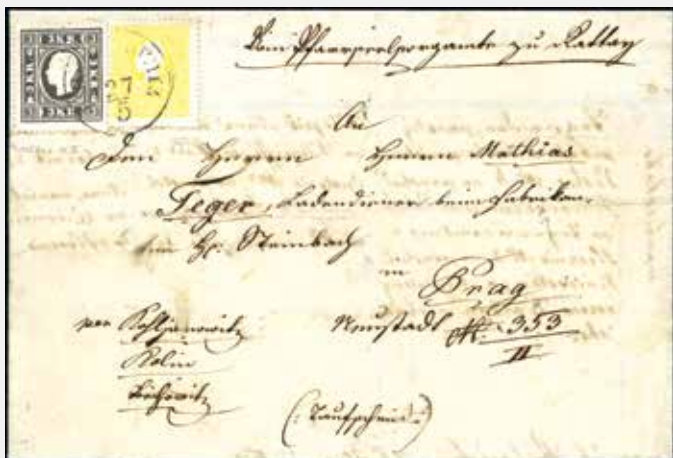 Vom Pfarrseelsorgamte zu Rattay
An
Den Herrn Herrn Mathias
Teger, Ladendiener beim Fabrikan-
ten H. Steinbach
in
Prag
Neustadt N. 353
II
per Kohljanowitz
Kolin
(: Taufschein :)
27
5